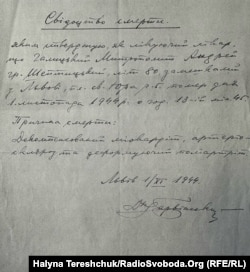 Свідоцтво смерти.
Яким стверджую, як лікуючий лікар,
що Галицький Митрополит Андрей
гр. Шептицький, літ 80 замешкалий
у Львові, пл. св. Юра ч. 5. помер дня
1 листопада 1944 р. о год. 13
Причина смерти:
міокардит, артеріо-
склероза деформуючий поліартрит
Львів 1/XI. 1944.
Dr
Halyna Tereshchuk/RadioSvoboda.Org (RFE/RL)